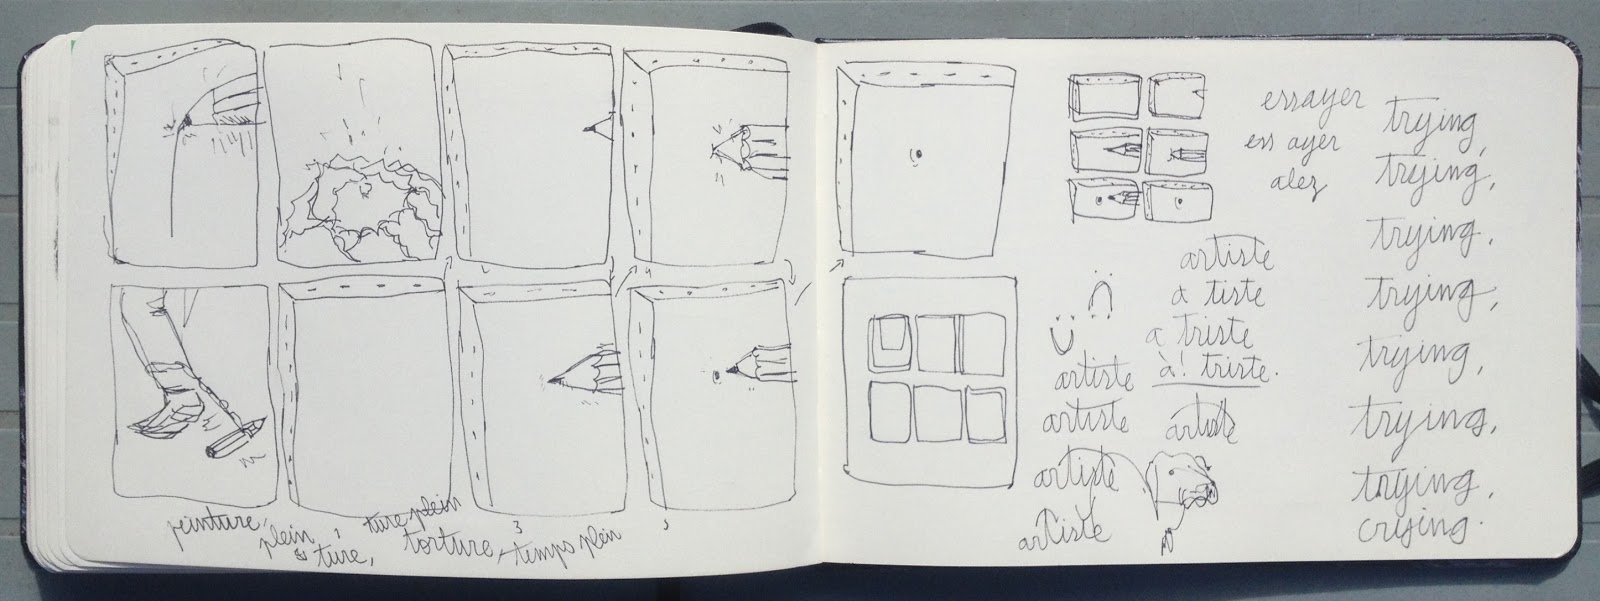 peinture,
plein
ture,
ture plein
torture,
temps plein
essayer
ess ayer
alez
artiste
a tiste
a triste
à! triste.
artiste
artiste
artiste
artiste
artiste
trying,
trying,
trying,
trying,
trying,
trying,
trying,
crying.